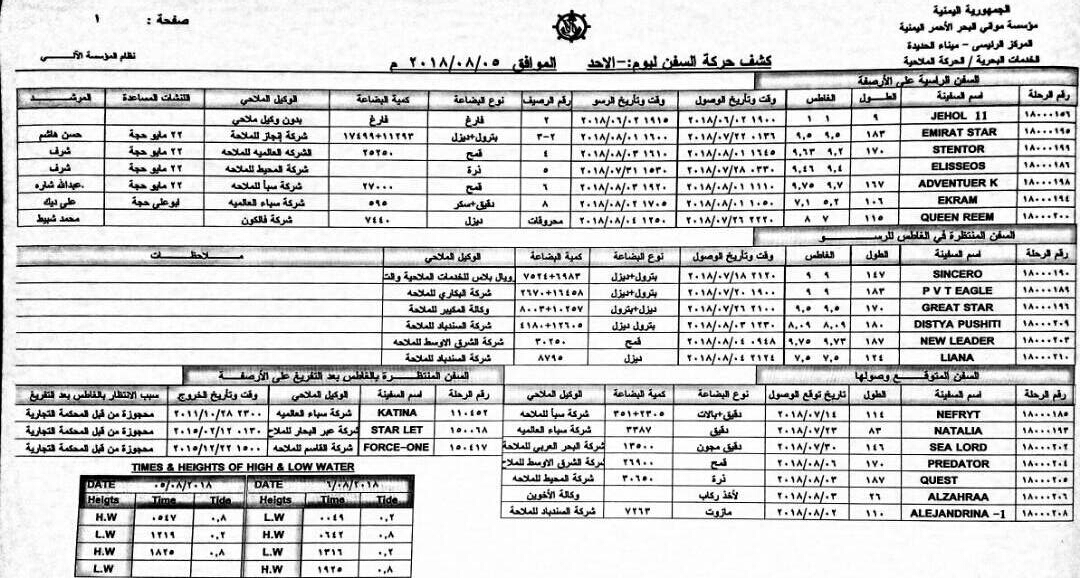 الجمهورية اليمنية
مؤسسة موانئ البحر الأحمر اليمنية
المركز الرئيسي – ميناء الحديدة
الخدمات البحرية / الحركة الملاحية
صفحة : ١
نظام المؤسسة الآلـــي
كشف حركة السفن ليوم:- الاحد الموافق ٢٠١٨/٠٨/٠٥ م
السفن الراسية على الأرصفة
رقم الرحلة اسم السفينة الطـــول الغاطس وقت وتأريخ الوصول وقت وتأريخ الرسو رقم الرصيف نوع البضاعة كمية البضاعة الوكيل الملاحي اللنشات المساعدة المرشـــد
١٨٠٠٠١٥٦ JEHOL 11 ٩ ١ ١ ١٩٠٠ ٢٠١٨/٠٦/٠٢ ١٩١٥ ٢٠١٨/٠٦/٠٢ ٢ فارغ فارغ بدون وكيل ملاحي
١٨٠٠٠١٩٥ EMIRAT STAR ١٨٣ ٩,٥ ٩,٥ ٠١٣٦ ٢٠١٨/٠٧/٢٢ ١٦٠٠ ٢٠١٨/٠٨/٠١ ٢-٣ بترول+ديزل ١٧٤٩٩+١١٢٩٣ شركة إنجاز للملاحة ٢٢ مايو حجة حسن هاشم
١٨٠٠٠١٩٩ STENTOR ١٧٠ ٩,٢ ٩,٦٣ ١٦٤٥ ٢٠١٨/٠٨/٠١ ١٦١٠ ٢٠١٨/٠٨/٠٣ ٤ قمح ٢٥٢٥٠ الشركه العالميه للملاحه ٢٢ مايو حجة شرف
١٨٠٠٠١٨٦ ELISSEOS ٩,٤ ٩,٤٦ ٠٣٣٠ ٢٠١٨/٠٧/٢٨ ١٥٣٠ ٢٠١٨/٠٧/٣١ ٥ ذرة شركة المحيط للملاحه ٢٢ مايو حجة شرف
١٨٠٠٠١٩٨ ADVENTUER K ١٦٧ ٩,٧ ٩,٧٥ ١١١٠ ٢٠١٨/٠٨/٠١ ١٩٢٠ ٢٠١٨/٠٨/٠٣ ٦ قمح ٢٧٠٠٠ شركة سبأ للملاحه ٢٢ مايو حجة عبدالله شاره
١٨٠٠٠١٩٤ EKRAM ١٠٦ ٥,٢ ٧,١ ١٠٥٠ ٢٠١٨/٠٨/٠١ ١٧٠٥ ٢٠١٨/٠٨/٠٢ ٨ دقيق+سكر ٥٩٥ شركة سباء العالميه ابوعلي حجة علي ديك
١٨٠٠٠٢٠٠ QUEEN REEM ١١٥ ٧ ٨ ٢٢٢٠ ٢٠١٨/٠٧/٢٦ ١٢٥٠ ٢٠١٨/٠٨/٠٤ محروقات ديزل ٧٤٤٠ شركة فالكون محمد شبيط
السفن المنتظرة في الغاطس للرســـو
رقم الرحلة اسم السفينة الطول الغاطس وقت وتأريخ الوصول نوع البضاعة كمية البضاعة الوكيل الملاحي مـــلاحظـــات
١٨٠٠٠١٩٠ SINCERO ١٤٧ ٩ ٩ ٢١٢٠ ٢٠١٨/٠٧/١٨ بترول+ديزل ٧٥٢٤+٦٩٨٣ رويال بلاس للخدمات الملاحية والت
١٨٠٠٠١٨٩ P V T EAGLE ١٨٣ ٩ ٩ ١٩٠٠ ٢٠١٨/٠٧/٢٠ بترول+ديزل ٢٦٧٠+١٦٤٥٨ شركة البكاري للملاحه
١٨٠٠٠١٩٦ GREAT STAR ١٧٠ ٩,٥ ٩,٥ ٢١٠٠ ٢٠١٨/٠٧/٢٦ ديزل+بترول ٨٠٠٣+١٠٢٥٧ وكالة المكبير للملاحة
١٨٠٠٠٢٠٩ DISTYA PUSHITI ١٨٠ ٨,٠٩ ٨,٠٩ ١٢٣٠ ٢٠١٨/٠٨/٠٣ بترول ديزل ٤١٨٠+١٢٦٠٥ شركة السندباد للملاحة
١٨٠٠٠٢٠٣ NEW LEADER ١٨٧ ٩,٧٣ ٩,٧٥ ٠٩٤٨ ٢٠١٨/٠٨/٠٤ قمح ٣٠٢٥٠ شركة الشرق الاوسط للملاحه
١٨٠٠٠٢١٠ LIANA ١٢٤ ٧,٥ ٧,٥ ٢١٢٤ ٢٠١٨/٠٨/٠٤ ديزل ٨٧٩٥ شركة السندباد للملاحة
السفن المتوقـــع وصولها
رقم الرحلة اسم السفينة الطول تاريخ توقع الوصول نوع البضاعة كمية البضاعة الوكيل الملاحي
١٨٠٠٠١٨٥ NEFRYT ١١٤ ٢٠١٨/٠٧/١٤ دقيق+بالات ٣٥١+٢٣٠٥ شركة سبأ للملاحه
١٨٠٠٠١٩٣ NATALIA ٨٣ ٢٠١٨/٠٧/٢٣ دقيق ٣٣٨٧ شركة سباء العالميه
١٨٠٠٠٢٠٢ SEA LORD ١٤٦ ٢٠١٨/٠٧/٣٠ دقيق مجون ١٣٥٠٠ شركة البحر العربي للملاحة
١٨٠٠٠٢٠٤ PREDATOR ١٧٠ ٢٠١٨/٠٨/٠٦ قمح ٢٦٩٠٠ شركة الشرق الاوسط للملاح
١٨٠٠٠٢٠٥ QUEST ١٨٧ ٢٠١٨/٠٨/٠٣ ذرة ٣٠٦٥٠ شركة المحيط للملاحه
١٨٠٠٠٢٠٦ ALZAHRAA ٢٦ ٢٠١٨/٠٨/٠٣ لأخذ ركاب وكالة الأخوين
١٨٠٠٠٢٠٨ ALEJANDRINA -1 ١١٠ ٢٠١٨/٠٨/٠٢ مازوت ٧٢٦٣ شركة السندباد للملاحة
السفن المنتظـــرة بالغاطس بعد التفريغ على الأرصفـــة
رقم الرحلة اسم السفينة الوكيل الملاحي وقت وتأريخ الخروج سبب الانتظار بالغاطس بعد التفريغ
١١٠٤٥٢ KATINA شركة سباء العالميه ٢٣٠٠ ٢٠١١/١٠/٢٨ محجوزة من قبل المحكمة التجارية
١٥٠٠٦٨ STAR LET شركة عبر البحار للملاح ٠١٣٠ ٢٠١٥/٠٢/١٢ محجوزة من قبل المحكمة التجارية
١٥٠٤١٧ FORCE-ONE شركة القاسم للملاحه ١٥٠٠ ٢٠١٥/١٢/٢٢ محجوزة من قبل المحكمة التجارية
TIMES & HEIGHTS OF HIGH & LOW WATER
DATE ٠٥/٠٨/٢٠١٨ DATE ٦/٠٨/٢٠١٨
Heigts Time Tide Heigts Time Tide
H.W ٠٥٤٧ ٠,٨ L.W ٠٠٤٩ ٠,٢
L.W ١٢١٩ ٠,٢ H.W ٠٦٤٢ ٠,٨
H.W ١٨٢٥ ٠,٨ L.W ١٣١٦ ٠,٢
L.W H.W ١٩٢٥ ٠,٨